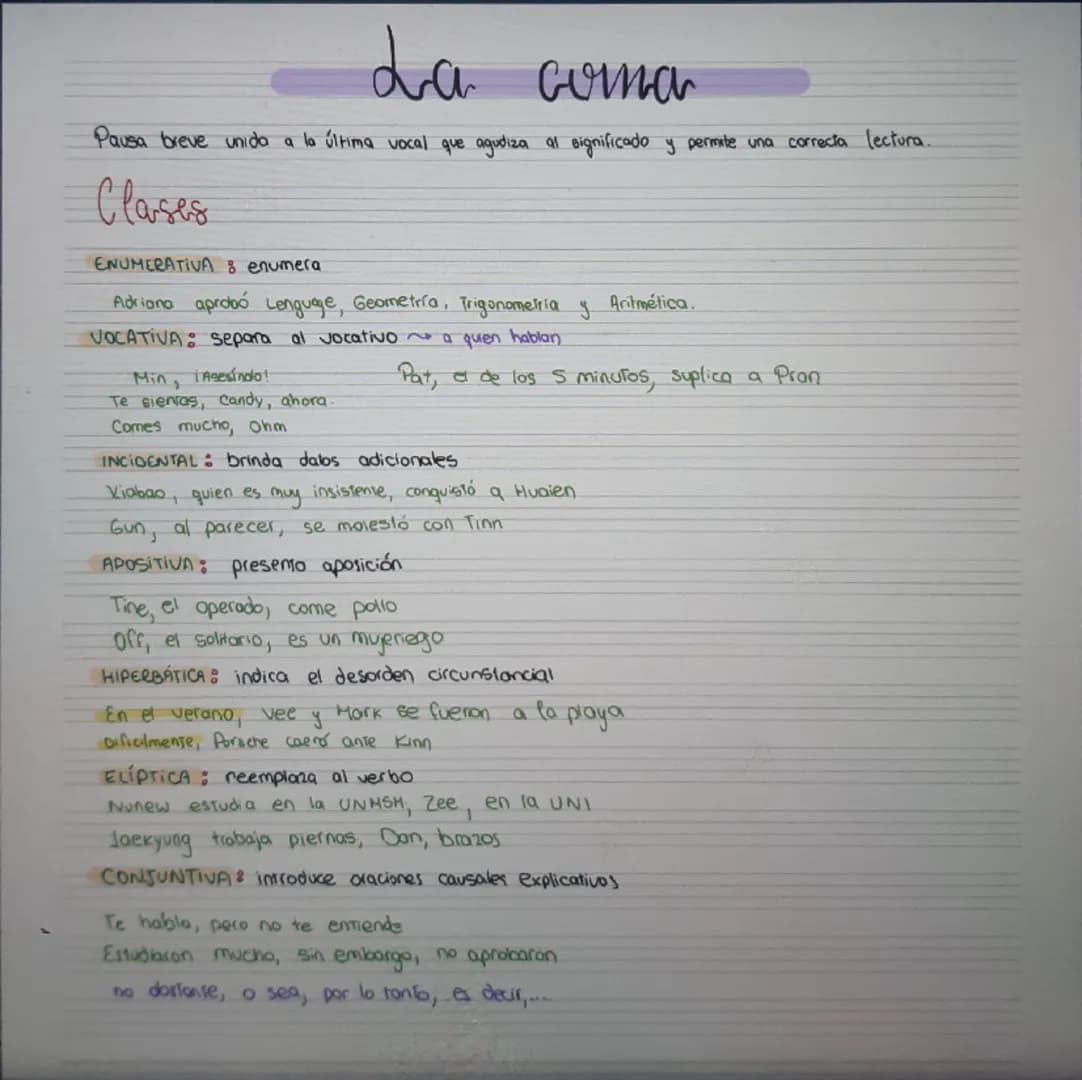 La coma
Pausa breve unida a la última vocal que agudiza al significado y permite una correcta lectura.
Clases
ENUMERATIVA: enumera
Adriana aprobó Lenguaje, Geometría, Trigonometría y Aritmética.
VOCATIVA: separa al vocativo ~> a quien hablan
Min, ¡Asesínalo! Pat, el de los 5 minutos, suplica a Pran
Te sientas, Candy, ahora.
Comes mucho, Ohm
INCIDENTAL: brinda datos adicionales
Xiabao, quien es muy insistente, conquistó a Huaien
Gun, al parecer, se molestó con Tinn
APOSITIVA: presenta aposición
Tine, el operado, come pollo
Off, el solitario, es un mujeriego
HIPERBÁTICA: indica el desorden circunstancial
En el verano, Vee y Mark se fueron a la playa
Dificilmente, Porsche caerá ante Kinn
ELÍPTICA: reemplaza al verbo
Nunew estudia en la UNMSM, Zee, en la UNI
Jaekyung trabaja piernas, Dan, brazos
CONJUNTIVA: introduce oraciones causales explicativas
Te habla, pero no te entiende
Estudiaron mucho, sin embargo, no aprobaron
no obstante, o sea, por lo tanto, es decir,...